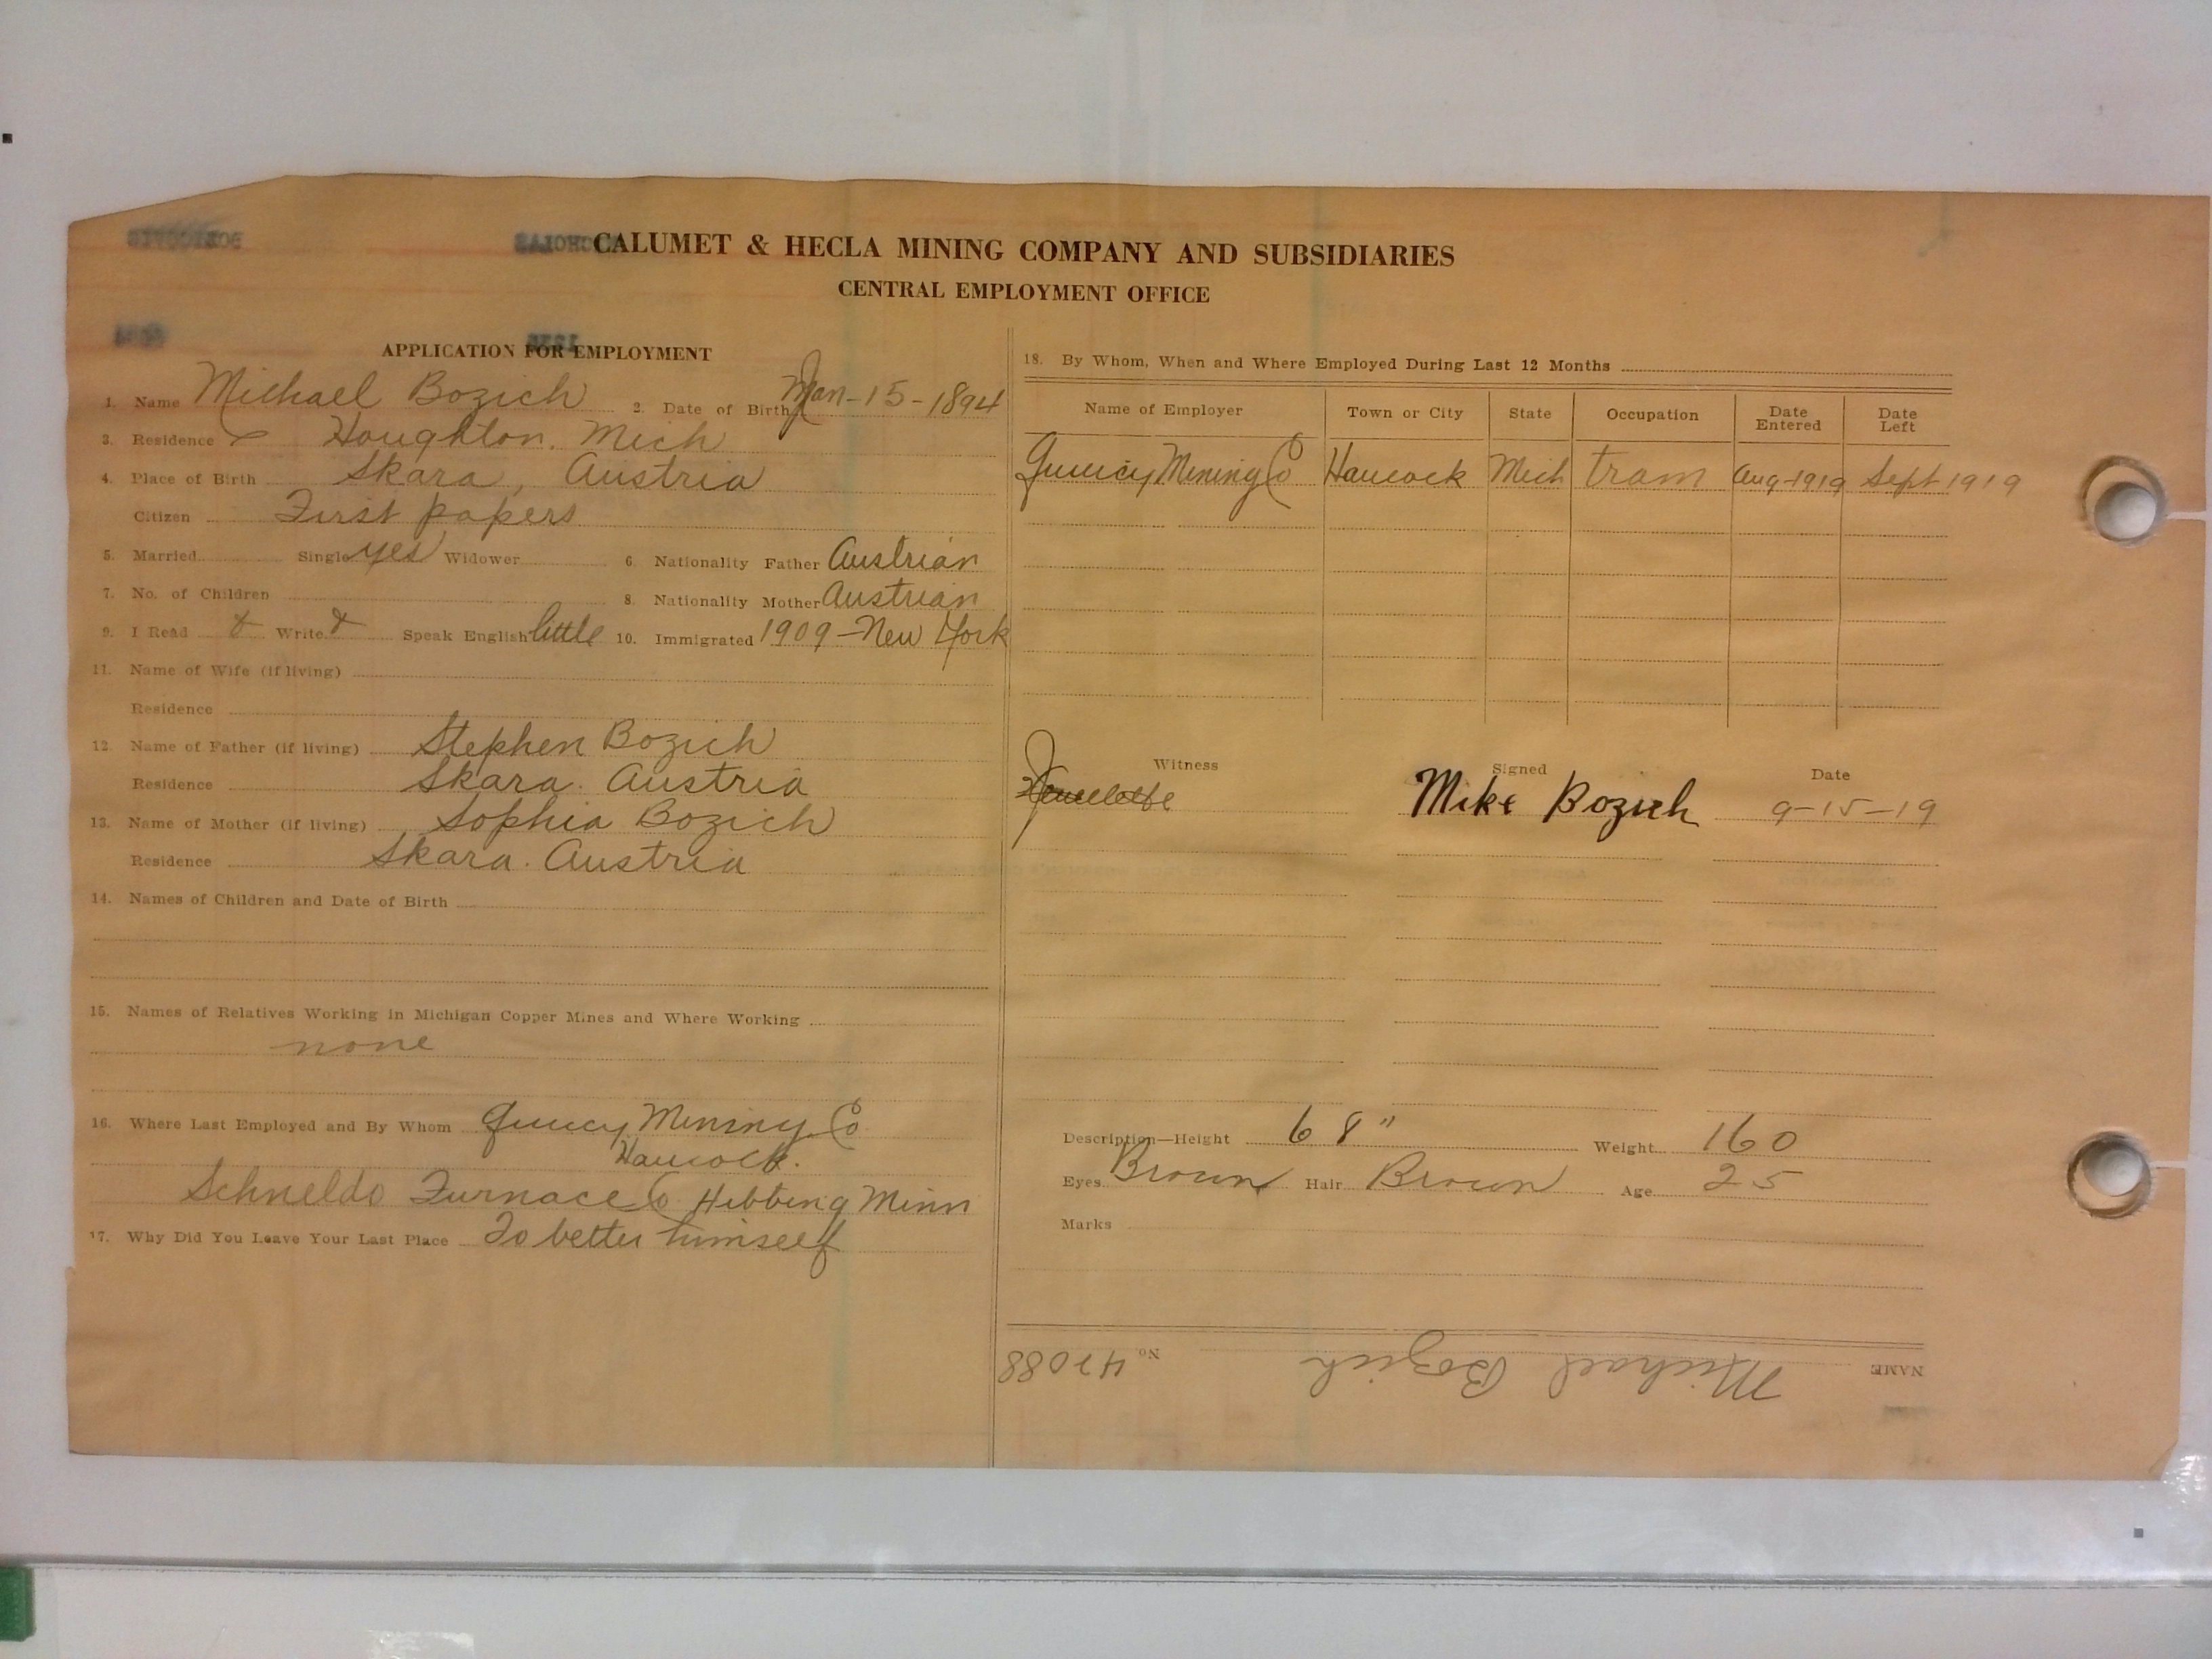 CALUMET & HECLA MINING COMPANY AND SUBSIDIARIES
CENTRAL EMPLOYMENT OFFICE
APPLICATION FOR EMPLOYMENT
1. Name Michael Bozich 2. Date of Birth Jan-15-1894
3. Residence Houghton. Mich
4. Place of Birth Skara, Austria
Citizen First papers
5. Married Single yes Widower 6. Nationality Father Austrian
7. No. of Children 8. Nationality Mother Austrian
9. I Read & Write & Speak English little 10. Immigrated 1909-New York
11. Name of Wife (if living)
Residence
12. Name of Father (if living) Stephen Bozich
Residence Skara. Austria
13. Name of Mother (if living) Sophia Bozich
Residence Skara. Austria
14. Names of Children and Date of Birth
15. Names of Relatives Working in Michigan Copper Mines and Where Working
none
16. Where Last Employed and By Whom Quincy Mining Co
Hancock.
Furnace Co Hibbing Minn
17. Why Did You Leave Your Last Place To better himself
18. By Whom, When and Where Employed During Last 12 Months
Name of Employer Town or City State Occupation Date Entered Date Left
Quincy Mining Co Hancock Mich tram Aug-1919 Sept 1919
Witness Signed Date
Mike Bozich 9-15-19
Description—Height 68" Weight 160
Eyes Brown Hair Brown Age 25
Marks
NAME Michael Bozich No. 47088